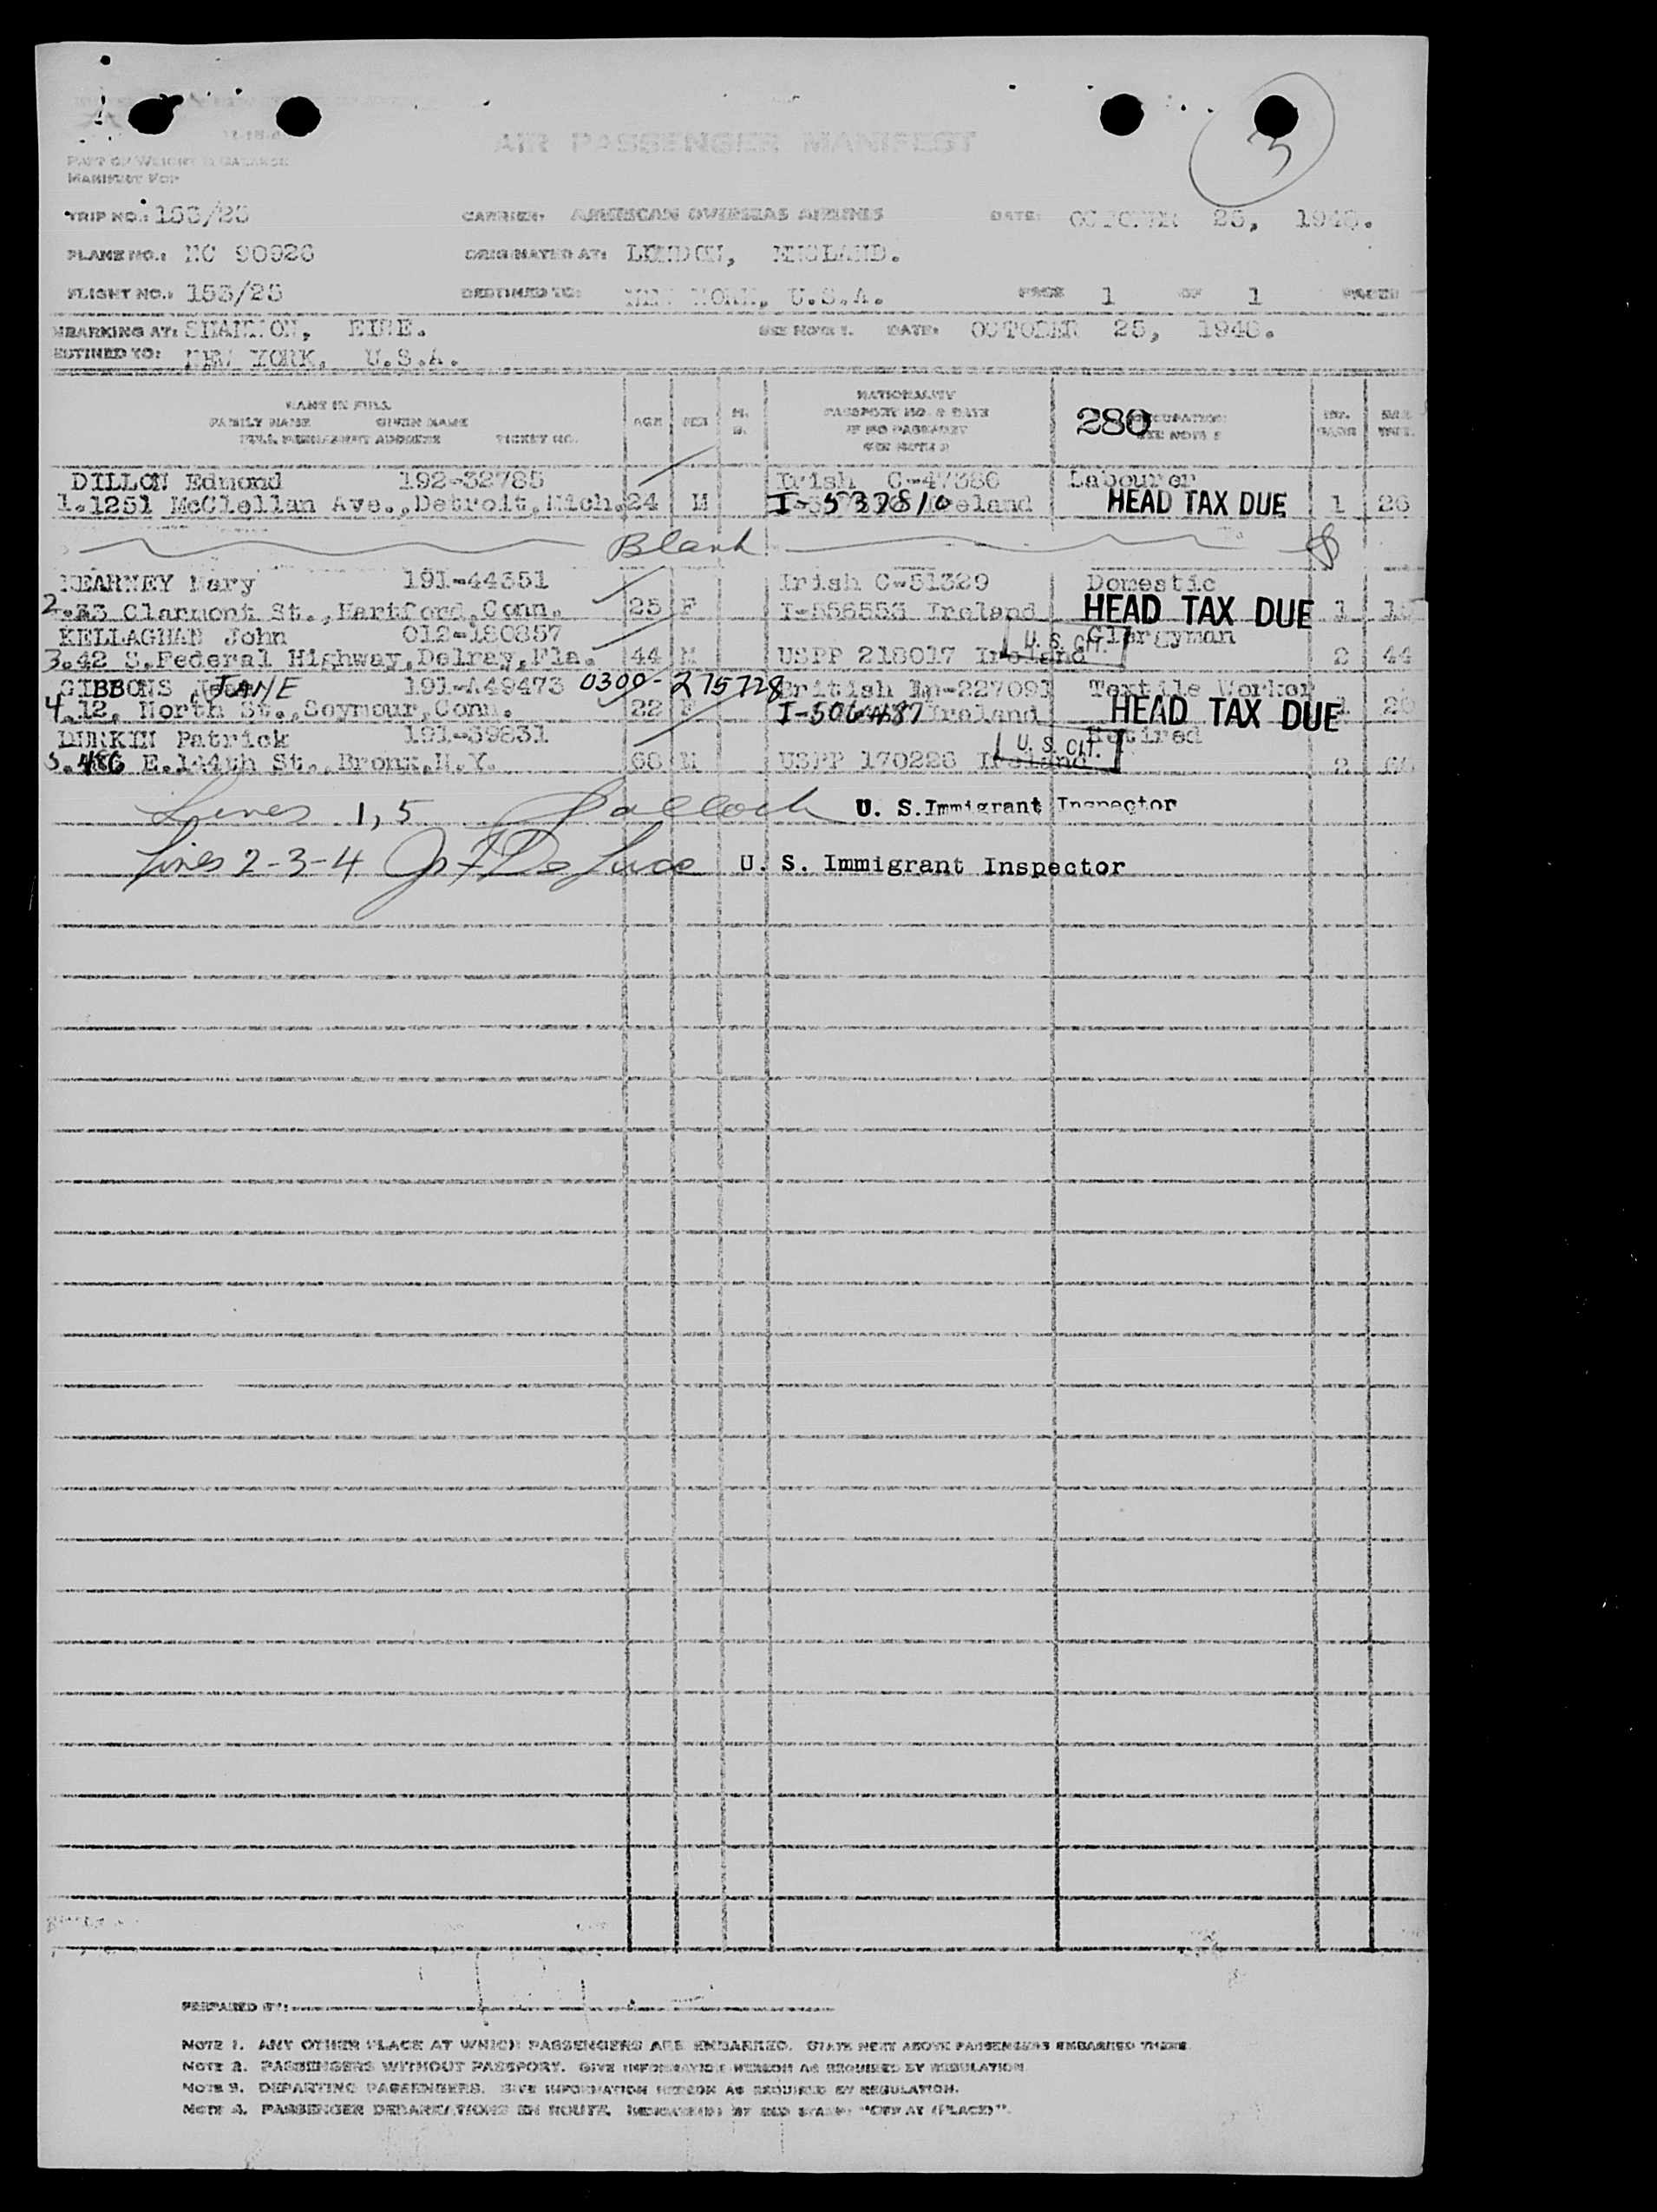 3
AIR PASSENGER MANIFEST
PART OF WEIGHT & BALANCE
MANIFEST FOR
TRIP NO.: 153/25 CARRIER: AMERICAN OVERSEAS AIRLINES DATE: OCTOBER 25, 194
PLANE NO.: NC 90926 ORIGINATED AT: LONDON, ENGLAND.
FLIGHT NO.: 153/25 DESTINED TO: NEW YORK, U.S.A. PAGE 1 OF 1 PAGES
MBARKING AT: SHANNON, EIRE. SEE NOTE 1. DATE: OCTOBER 25, 194
ESTINED TO: NEW YORK, U.S.A.
NAME IN FULL
FAMILY NAME GIVEN NAME
FULL PERMANENT ADDRESS TICKET NO.
AGE SEX
NATIONALITY
PASSPORT NO. & DATE
IF NO PASSPORT
SEE NOTE 2
280 OCCUPATION
SEE NOTE 3
DILLON Edmond 192-32785 Irish C-47386 Labourer
1. 1251 McClellan Ave., Detroit, Mich. 24 M I-537810 Ireland HEAD TAX DUE 1 26
Blank
KEARNEY Mary 191-44351 Irish C-51329 Domestic
2. 33 Clarmont St., Hartford, Conn. 25 F I-556553 Ireland HEAD TAX DUE 1
KELLAGHAN John 012-180857 U. S. CIT. Clergyman
3. 42 S. Federal Highway, Delray, Fla. 44 M USPP 218017 Ireland 2 44
GIBBONS, JANE 191-A49473 0300-275728 British 227091 Textile Worker
4. 12, North St., Seymour, Conn. 22 F I-506487 Ireland HEAD TAX DUE 1 20
DURKIN Patrick 191-39831 U. S. CIT. Retired
5. 486 E. 144th St., Bronx, N.Y. 68 M USPP 170226 Ireland 2
Lines 1, 5 U. S. Immigrant Inspector
Lines 2-3-4 U. S. Immigrant Inspector
PREPARED BY:
NOTE 1. ANY OTHER PLACE AT WHICH PASSENGERS ARE EMBARKED. STATE NEXT ABOVE PASSENGERS EMBARKED THERE
NOTE 2. PASSENGERS WITHOUT PASSPORT. GIVE INFORMATION HEREON AS REQUIRED BY REGULATION
NOTE 3. DEPARTING PASSENGERS. GIVE INFORMATION HEREON AS REQUIRED BY REGULATION.
NOTE 4. PASSENGER DEBARKATIONS EN ROUTE. INDICATE(D) BY RED STAMP "OFF AT (PLACE)".